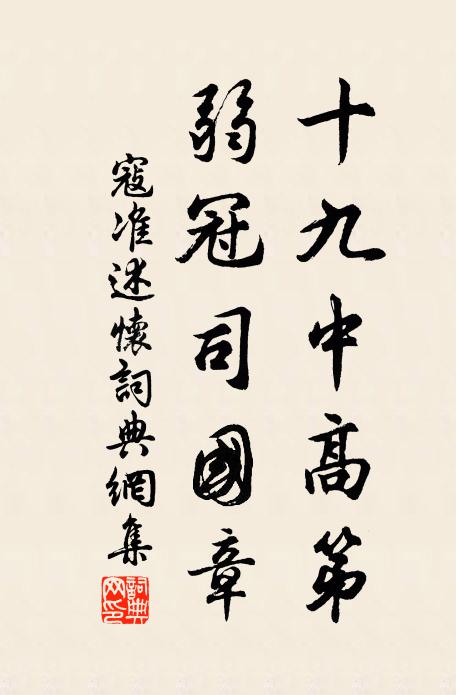 十九中高第
弱冠司國章
寇准述懷詞典網集
詞典網印